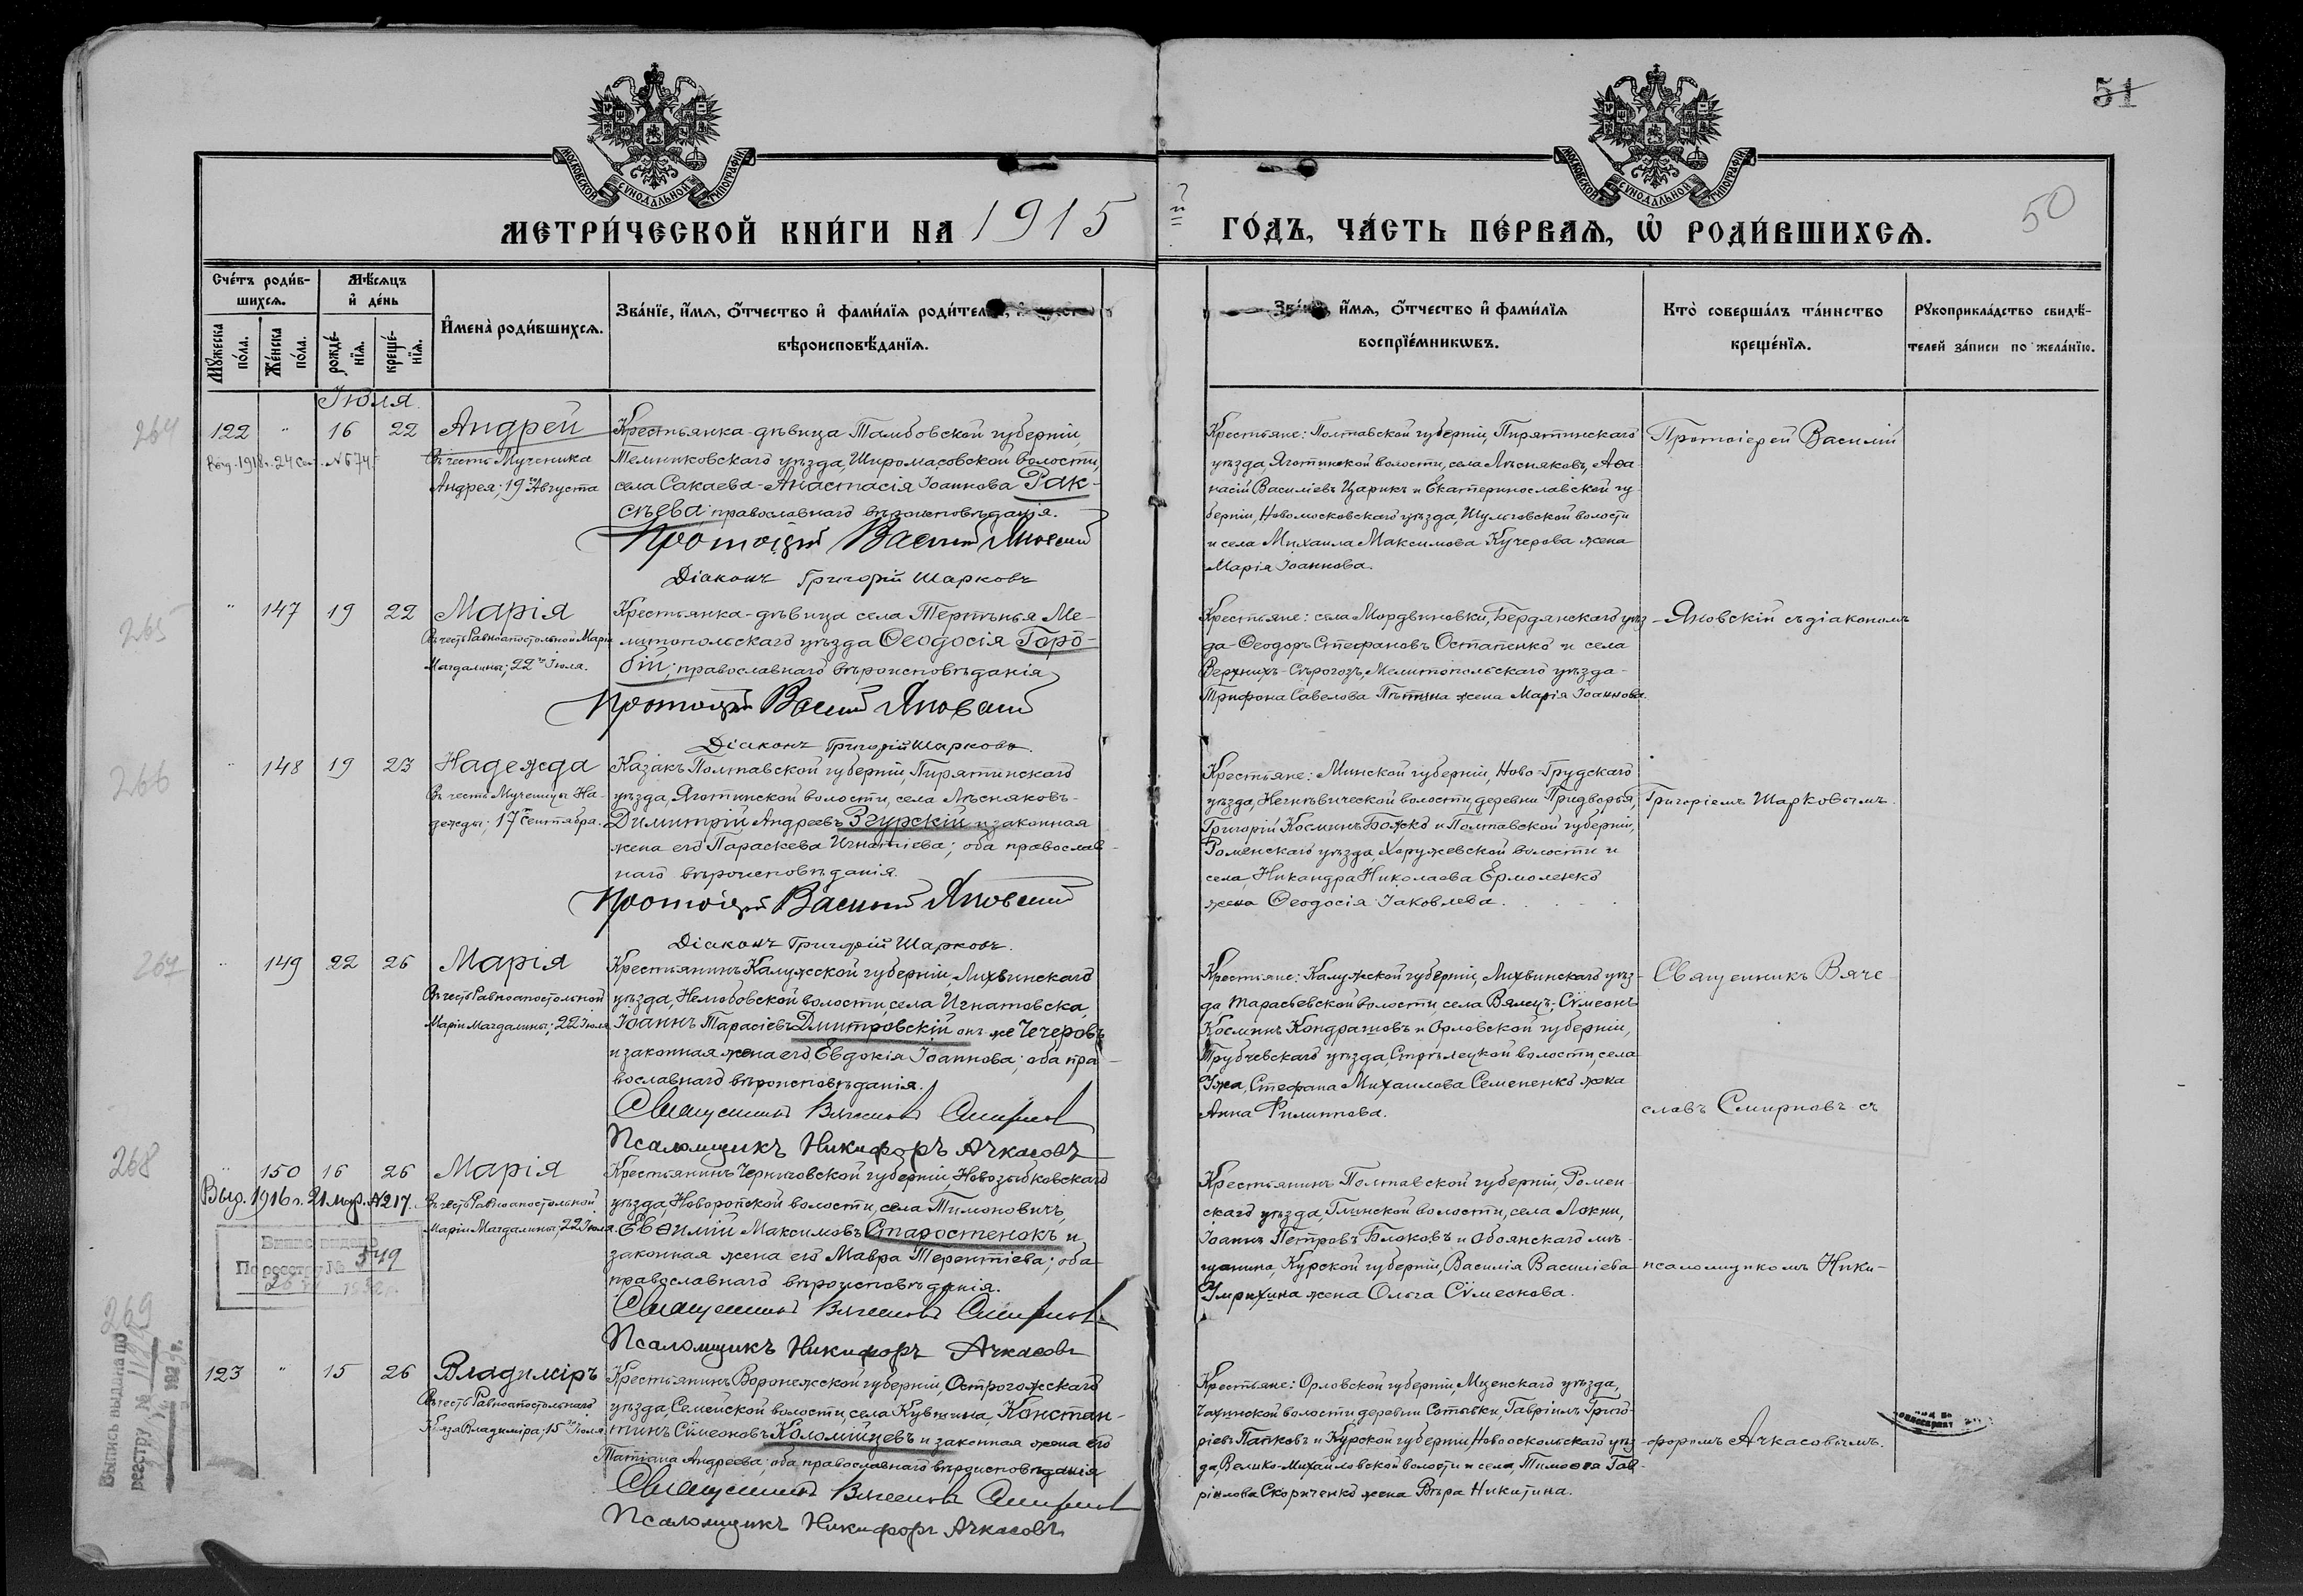 51
МОСКОВСКОЙ СѴНОДАЛЬНОЙ ТИПОГРАФІИ
МОСКОВСКОЙ СѴНОДАЛЬНОЙ ТИПОГРАФІИ
МЕТРИ́ЧЕСКОЙ КНИ́ГИ НА 1915
й ГО́ДЪ, ЧА́СТЬ ПЕ́РВАЯ, Ѡ РОДИ́ВШИХСЯ.
50
Сче́тъ роди́в-
шихся.
Мѣ́сяцъ
и҆ де́нь
Мꙋжеска по́ла.
Же́нска по́ла.
рожде́-нїя.
креще́-нїя.
И҆мена̀ роди́вшихся.
Зва́нїе, и҆́мя, ѻ҆́тчество и҆ фами́лїя родител
вѣроисповѣ́данїя.
и҆́мя, ѻ҆́тчество и҆ фами́лїя
воспрїе́мникѡвъ.
Кто̀ соверша́лъ та́инство
креще́нїя.
Рꙋкоприкла́дство свидѣ́-
телей за́писи по жела́нїю.
Іюля
264
122 " 16 22 Андрей
Выд. 1918 г. 24 Сен. № 574.
Въ честь Мученика
Андрея; 19го Августа
Крестьянка-дѣвица Тамбовской губерніи,
Темниковскаго уѣзда, Широмасовской волости,
села Сакаева - Анастасія Іоаннова Рак-
сѣева православнаго вѣроисповѣданія.
Протоіерей Василій Яновскій
Діаконъ Григорій Шарковъ
Крестьяне: Полтавской губерніи, Пирятинскаго
уѣзда, Яготинской волости, села Лѣсняковъ, Аѳа
насій Василіевъ Царикъ и Екатеринославской гу
берніи, Новомосковскаго уѣзда, Шульговской волости
и села Михаила Максимова Кучерова жена
Марія Іоаннова.
Протоіерей Василій
265
" 147 19 22 Марія
Въ честь Равноапостольной Маріи
Магдалины; 22го Іюля.
Крестьянка-дѣвица села Терпѣнья Ме-
литопольскаго уѣзда Ѳеодосія Горо-
бій; православнаго вѣроисповѣданія
Протоіерей Василій Яновскій
Діаконъ Григорій Шарковъ.
Крестьяне: села Мордвиновки, Бердянскаго уѣз
да - Ѳеодоръ Стефановъ Остапенко и села
Верхнихъ-Сѣрогозъ, Мелитопольскаго уѣзда -
Трифона Савелова Пѣтина жена Марія Іоаннова.
- Яновскій съ діакономъ
266
" 148 19 23 Надежда
Въ честь Мученицы На-
дежды; 17го Сентября.
Казакъ Полтавской губерніи, Пирятинскаго
уѣзда, Яготинской волости, села Лѣсняковъ -
Димитрій Андреевъ Згурскій и законная
жена его Параскева Игнатіева; оба православ-
наго вѣроисповѣданія.
Протоіерей Василій Яновскій
Діаконъ Григорій Шарковъ.
Крестьяне: Минской губерніи, Ново-Грудскаго
уѣзда, Негнѣвической волости, деревни Придворья,
Григорій Косминъ Божко и Полтавской губерніи,
Роменскаго уѣзда, Хоружевской волости и
села, Никандра Николаева Ермоленко
жена Ѳеодосія Іаковлева.
Григоріемъ Шарковымъ.
267
" 149 22 26 Марія
Въ честь Равноапостольной
Маріи Магдалины; 22 Іюля
Крестьянинъ Калужской губерніи, Лихвинскаго
уѣзда, Нелюбовской волости, села Игнатовска,
Іоаннъ Тарасіевъ Дмитровскій онъ же Чечеровъ
и законная жена его Евдокія Іоаннова; оба пра-
вославнаго вѣроисповѣданія.
Священникъ Вячеславъ Смирновъ
Псаломщикъ Никифоръ Ачкасовъ
Крестьяне: Калужской губерніи, Лихвинскаго уѣз-
да Тарасьевской волости, села Вялецъ, Сѵмеонъ
Косминъ Кондрашовъ и Орловской губерніи,
Трубчевскаго уѣзда, Стрѣлецкой волости, села
Ужа, Стефана Михаилова Семененко жена
Анна Филиппова.
Священникъ Вяче-
славъ Смирновъ съ
268
" 150 16 26 Марія
Выд. 1916 г. 21 Мар. № 217.
Въ честь Равноапостольной
Маріи Магдалины; 22 Іюля.
Крестьянинъ Черниговской губерніи, Новозыбковскаго
уѣзда, Новоропской волости, села Тимоновичъ,
Евѳимій Максимовъ Старостенокъ и
законная жена его Мавра Терентіева; оба
православнаго вѣроисповѣданія.
Священникъ Вячеславъ Смирновъ.
Псаломщикъ Никифоръ Ачкасовъ
Крестьянинъ Полтавской губерніи, Ромен-
скаго уѣзда, Глинской волости, села Локни,
Іоаннъ Петровъ Блоковъ и Обоянскаго мѣ-
щанина, Курской губерніи, Василія Василіева
Умрихина жена Ольга Сѵмеонова.
псаломщикомъ Ники-
По реестру № 549
269
Выпись выдана по
реестру №
123 " 15 26 Владиміръ
Въ честь Равноапостольнаго
Князя Владиміра; 15го Іюля.
Крестьянинъ Воронежской губерніи, Острогожскаго
уѣзда, Семейской волости, села Кувшина, Констан-
тинъ Сѵмеоновъ Коломійцевъ и законная жена его
Татіана Андреева; оба православнаго вѣроисповѣданія
Священникъ Вячеславъ Смирновъ
Псаломщикъ Никифоръ Ачкасовъ
Крестьяне: Орловской губерніи, Мценскаго уѣзда,
волости деревни Сотывки, Гавріилъ Григо-
ріевъ Папковъ и Курской губерніи, Новооскольскаго уѣз-
да, Велико-Михайловской волости и села, Тимоѳея Гав-
ріилова Скориченко жена Вѣра Никитина.
форомъ Ачкасовымъ.